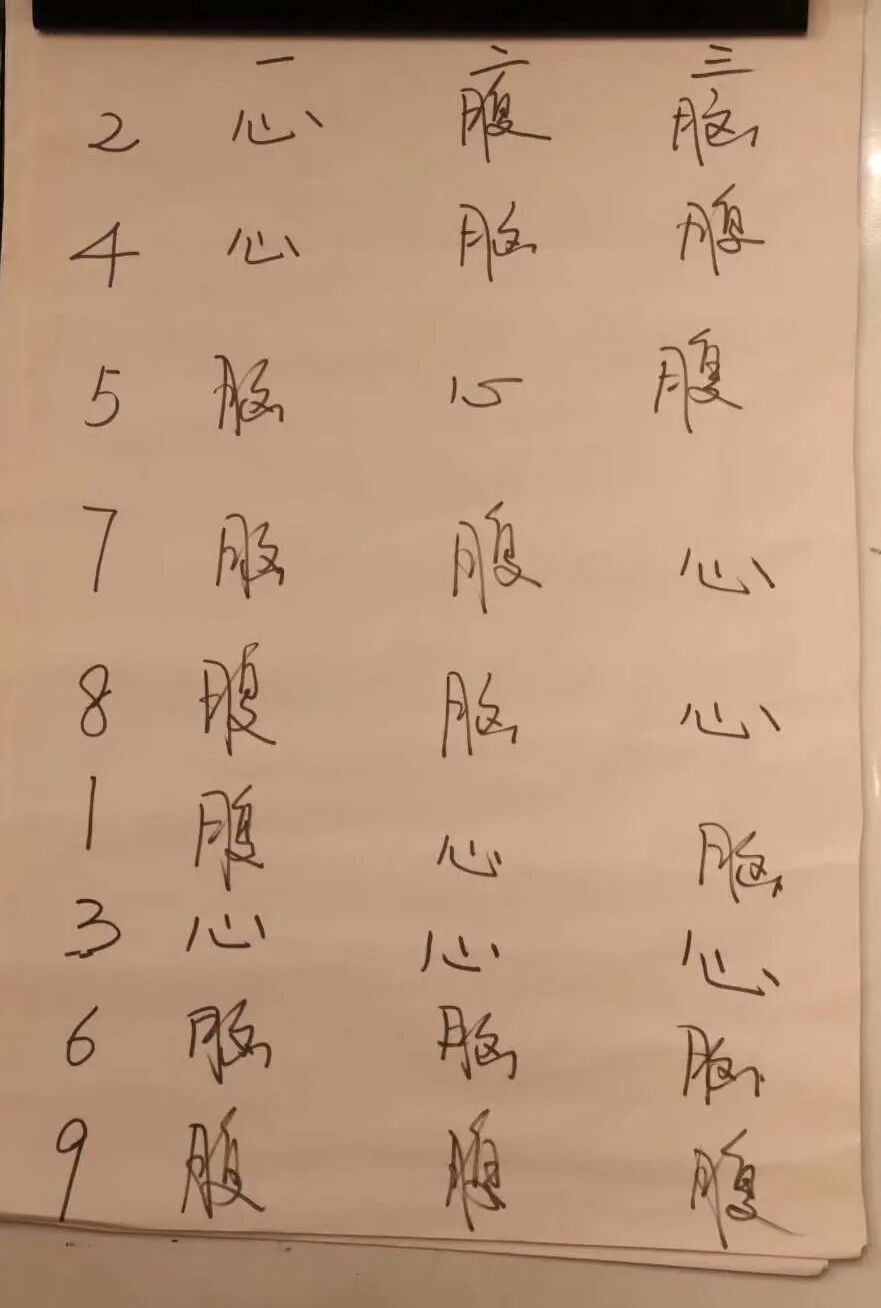 一 二 三
2 心 腹 脑
4 心 脑 腹
5 脑 心 腹
7 脑 腹 心
8 腹 脑 心
1 腹 心 脑
3 心 心 心
6 脑 脑 脑
9 腹 腹 腹